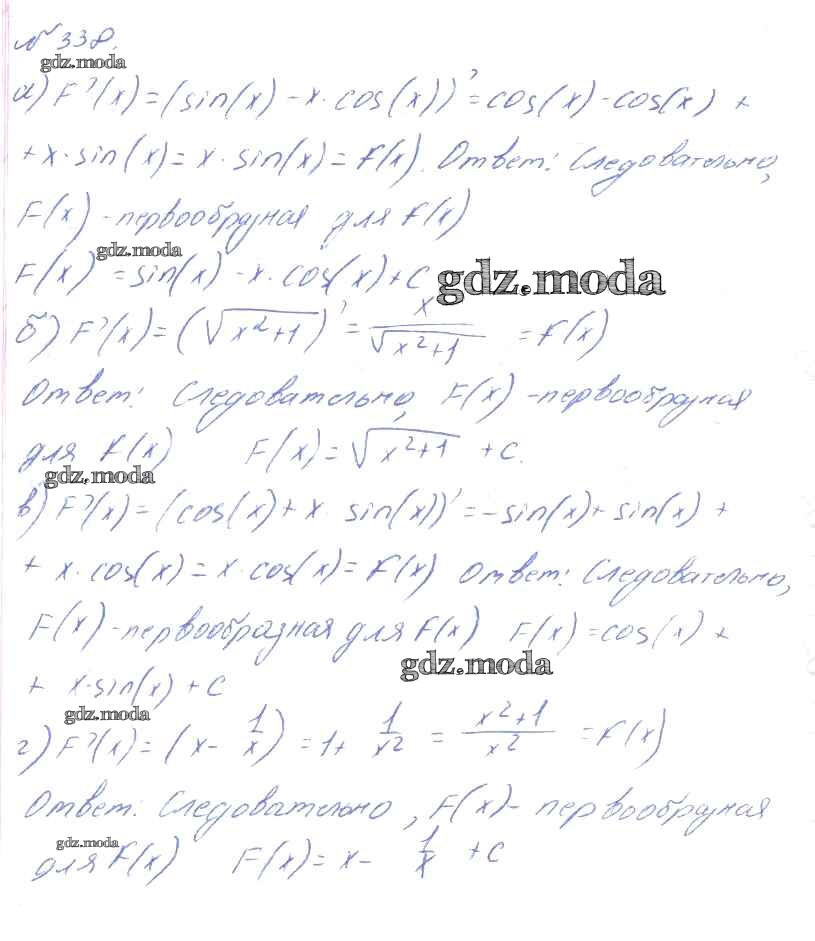 № 338.
gdz.moda
а) F'(x) = (sin(x) - x · cos(x))' = cos(x) - cos(x) +
+ x · sin(x) = x · sin(x) = f(x). Ответ: Следовательно,
F(x) - первообразная для f(x)
gdz.moda
F(x) = sin(x) - x · cos(x) + C
gdz.moda
б) F'(x) = (√(x²+1))' = x/√(x²+1) = f(x)
Ответ: Следовательно, F(x) - первообразная
для f(x) F(x) = √(x²+1) + C.
gdz.moda
в) F'(x) = (cos(x) + x · sin(x))' = -sin(x) + sin(x) +
+ x · cos(x) = x · cos(x) = f(x) Ответ: Следовательно,
F(x) - первообразная для f(x) F(x) = cos(x) +
gdz.moda
+ x·sin(x) + C
gdz.moda
г) F'(x) = (x - 1/x) = 1 + 1/x² = (x²+1)/x² = f(x)
Ответ: Следовательно, F(x) - первообразная
gdz.moda
для f(x) F(x) = x - 1/x + C